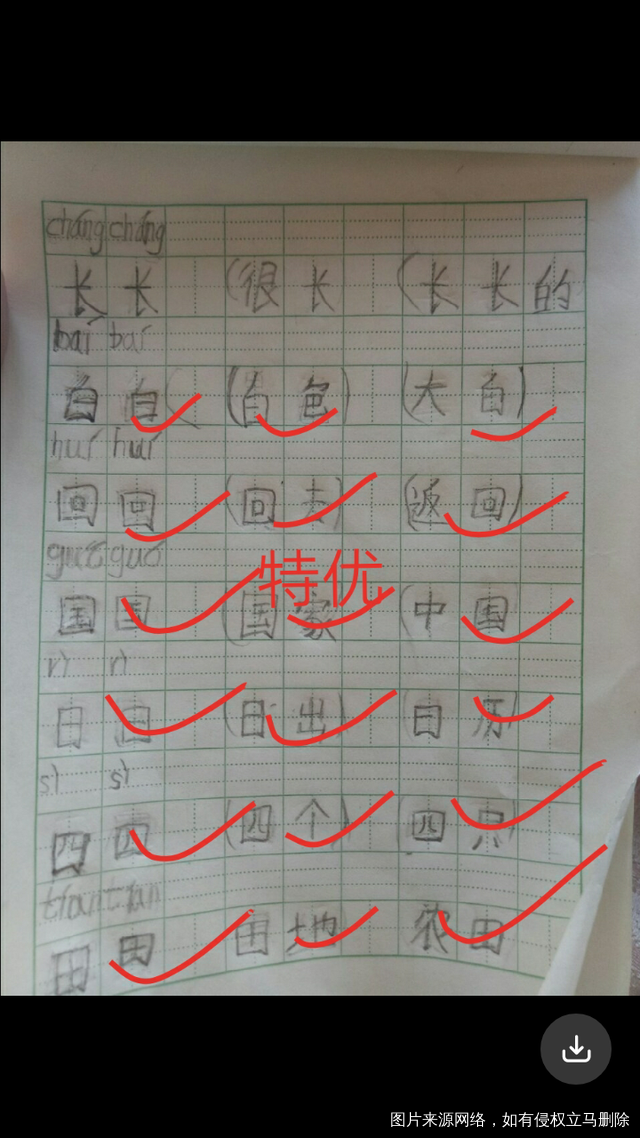 cháng cháng
长 长 (很 长 (长 长 的
bái bái
白 白 ( (白 色) (大 白)
huí huí
回 回 (回 去) (返 回)
guó guó
特优
国 国 (国 家 (中 国
rì rì
日 日 (日 出) (日 历)
sì sì
四 四 (四 个) (四 只)
tián tián
田 田 田 地 农 田
图片来源网络，如有侵权立马删除